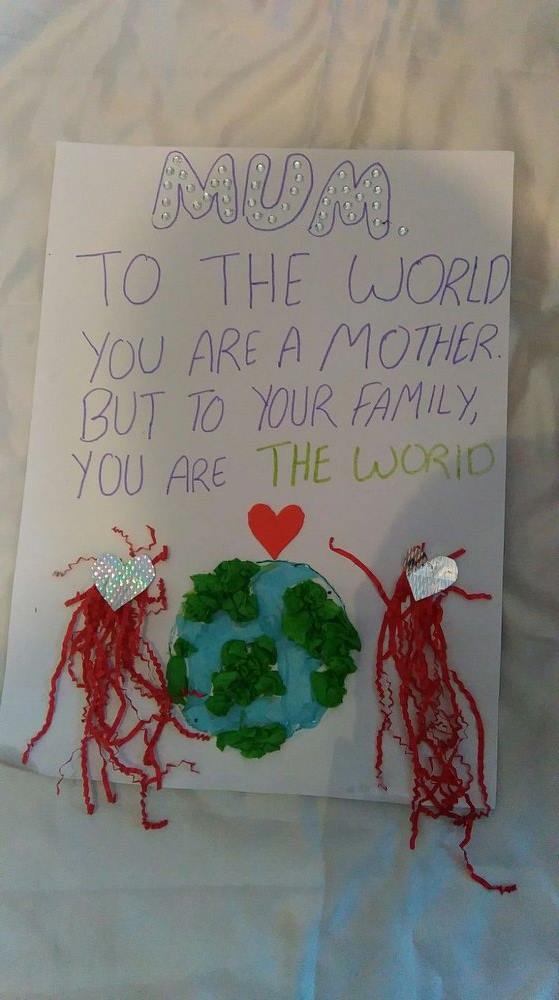 MUM.
TO THE WORLD
YOU ARE A MOTHER.
BUT TO YOUR FAMILY,
YOU ARE THE WORLD